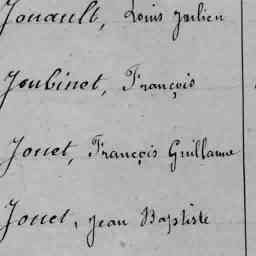 Jouault, Louis Julien
Joubinot, François
Jouet, François Guillaume
Jouet, Jean Baptiste